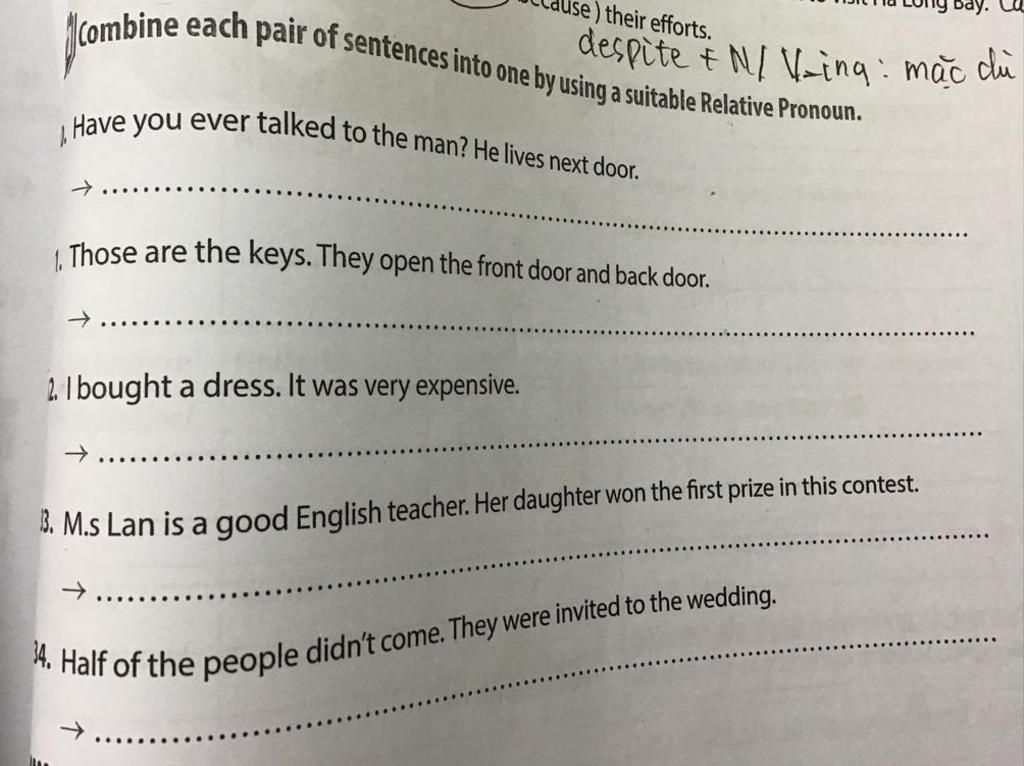 cause ) their efforts.
Long Bay.
despite + N/ V-ing : mặc dù
Combine each pair of sentences into one by using a suitable Relative Pronoun.
Have you ever talked to the man? He lives next door.
→ ........................................
1. Those are the keys. They open the front door and back door.
→ ........................................
2. I bought a dress. It was very expensive.
→ ........................................
3. M.s Lan is a good English teacher. Her daughter won the first prize in this contest.
→ ........................................
34. Half of the people didn't come. They were invited to the wedding.
→ ........................................